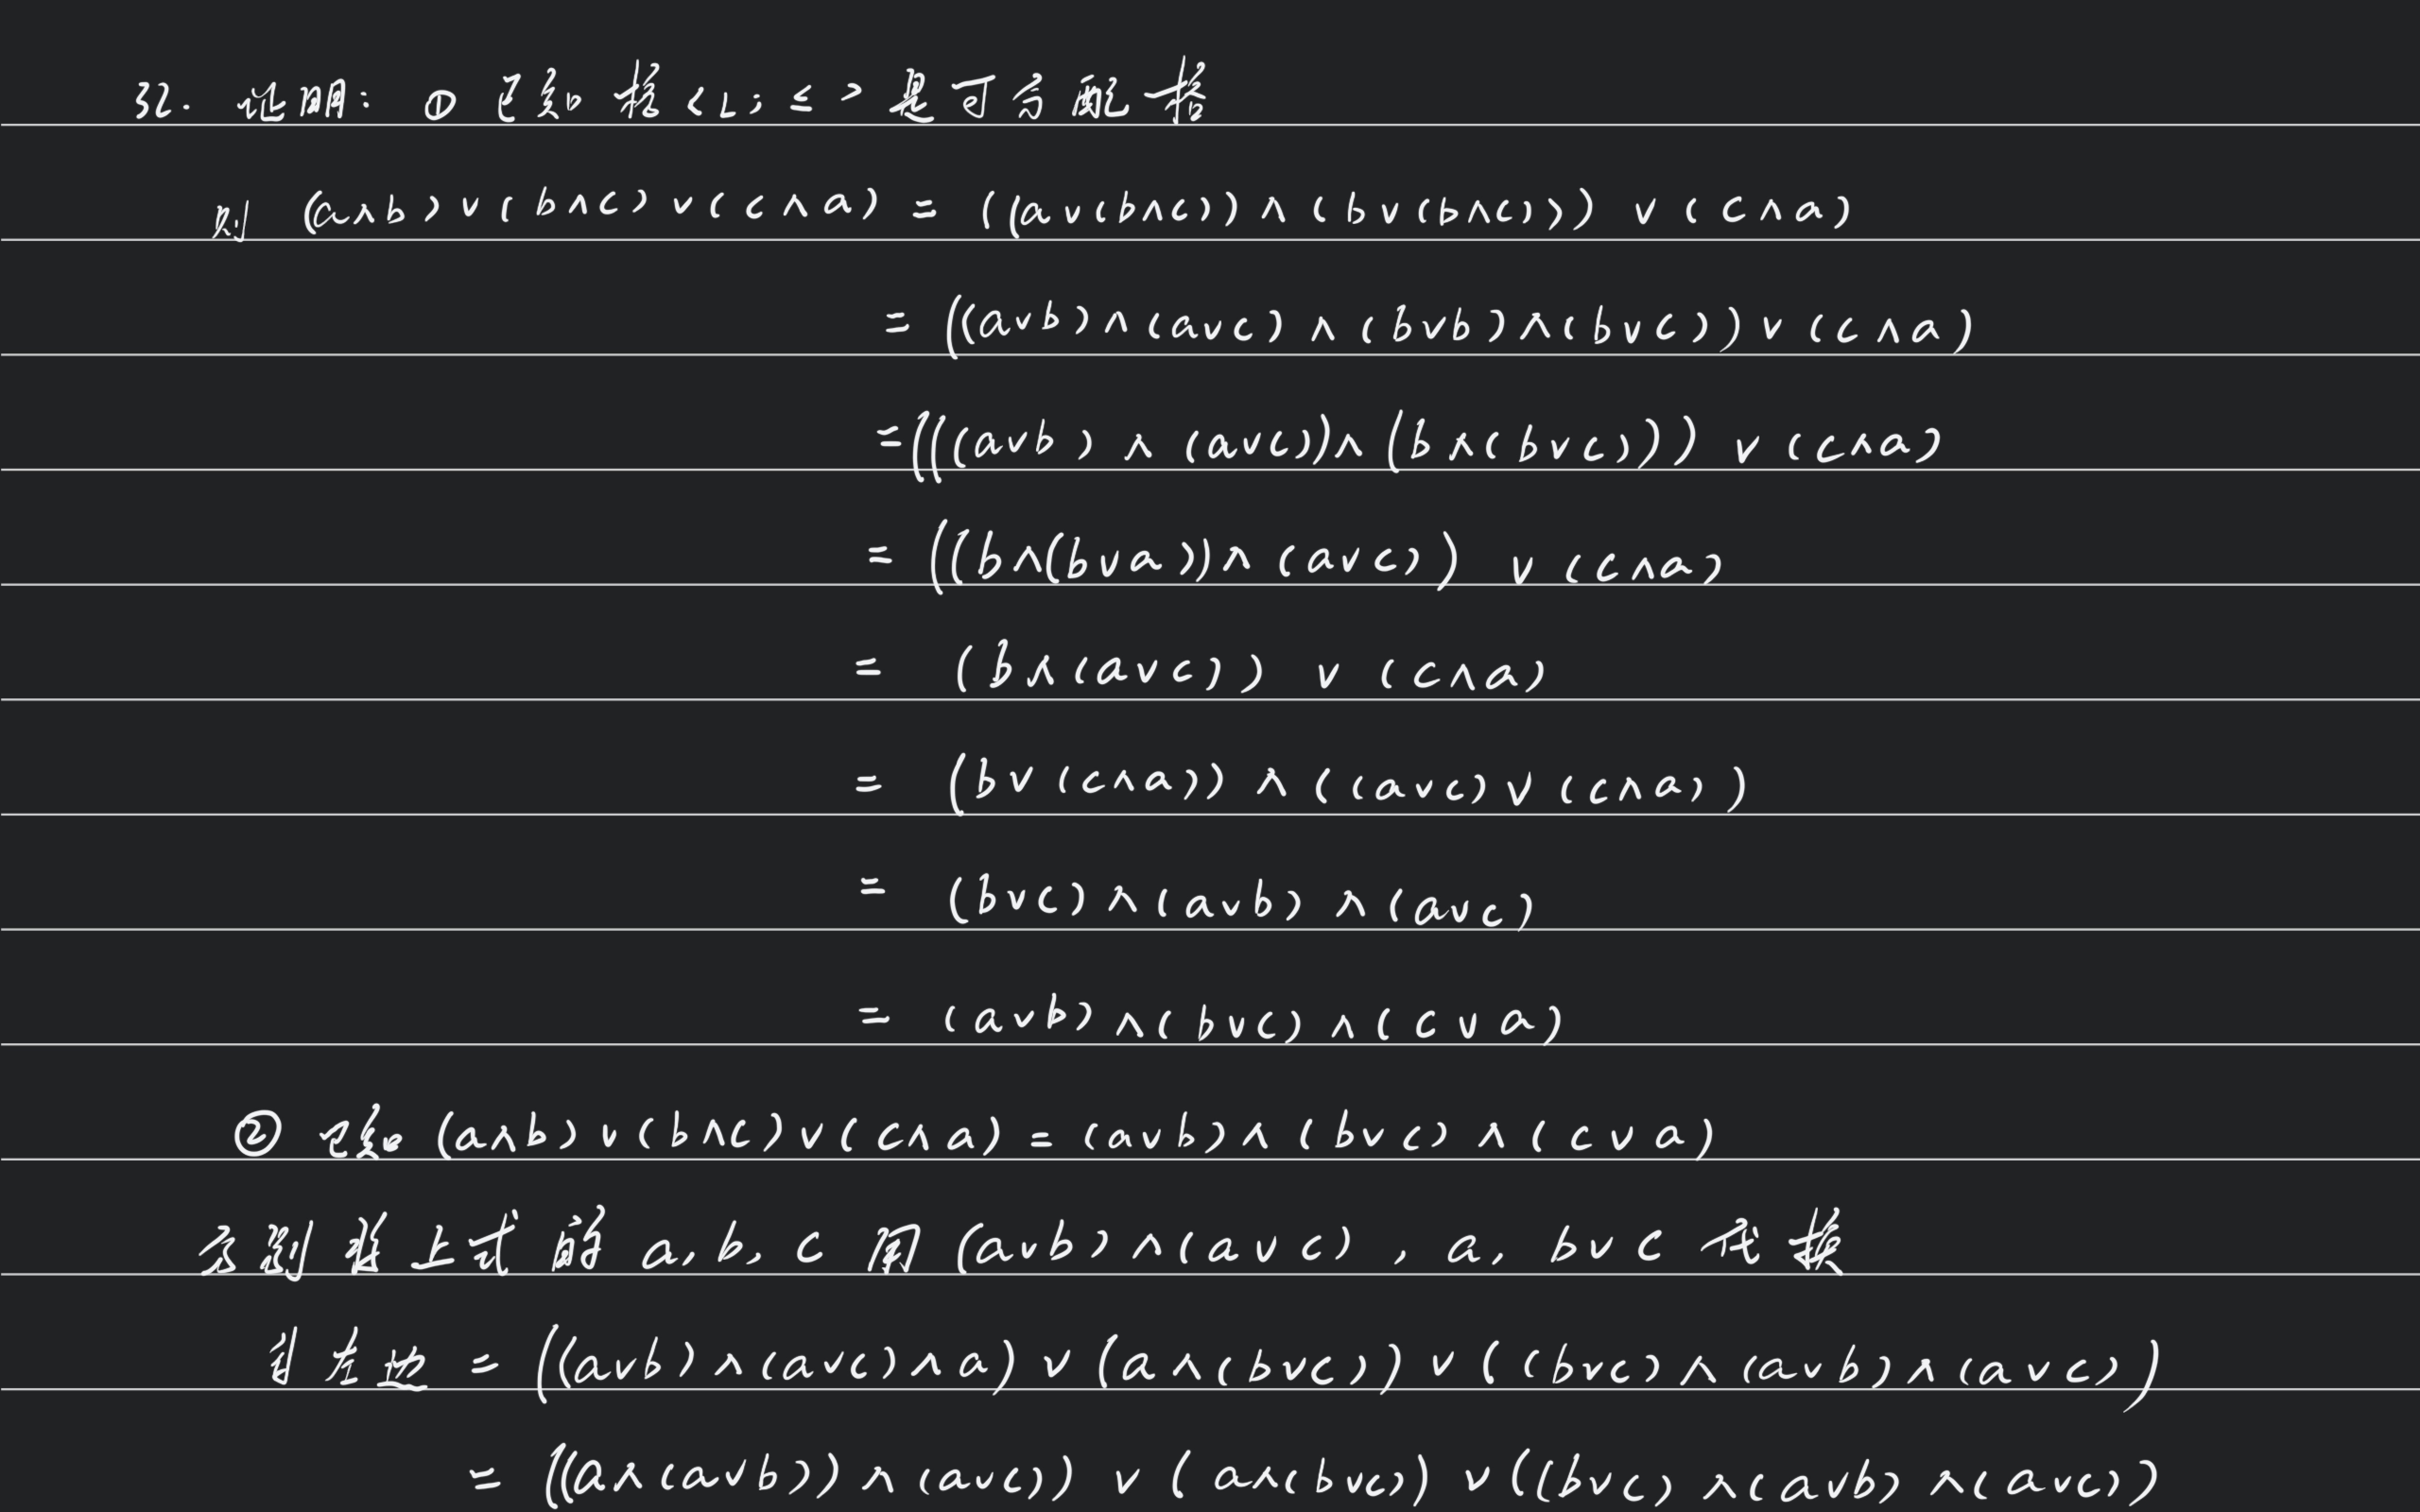 32. 证明: ① 已知格<L;≤>是可分配格
则 (a∧b)∨(b∧c)∨(c∧a) = ((a∨(b∧c))∧(b∨(b∧c)))∨(c∧a)
= ((a∨b)∧(a∨c)∧(b∨b)∧(b∨c))∨(c∧a)
=(((a∨b)∧(a∨c))∧(b∧(b∨c)))∨(c∧a)
= ((b∧(b∨a))∧(a∨c))∨(c∧a)
= (b∧(a∨c))∨(c∧a)
= (b∨(c∧a))∧((a∨c)∨(c∧a))
= (b∨c)∧(a∨b)∧(a∨c)
= (a∨b)∧(b∨c)∧(c∨a)
② 已知 (a∧b)∨(b∧c)∨(c∧a) = (a∨b)∧(b∨c)∧(c∨a)
分别将上式的 a, b, c 用 (a∨b)∧(a∨c), a, b∨c 代换
则左边 = ((a∨b)∧(a∨c)∧a)∨(a∧(b∨c))∨((b∨c)∧(a∨b)∧(a∨c))
= ((a∧(a∨b))∧(a∨c))∨(a∧(b∨c))∨((b∨c)∧(a∨b)∧(a∨c))